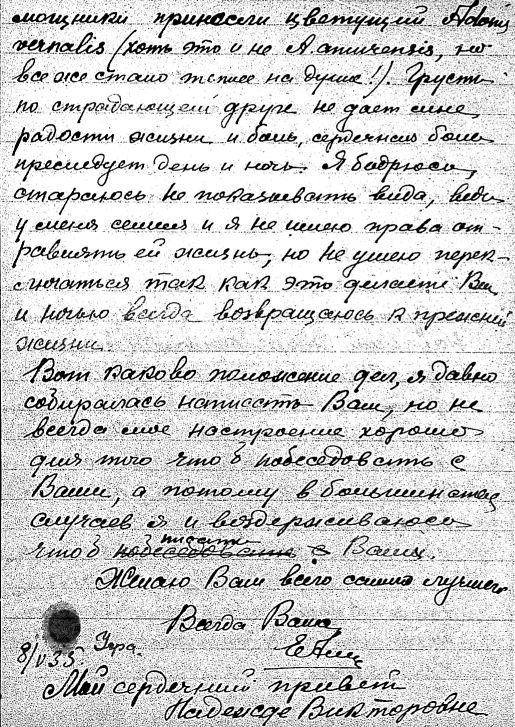 мощники принесли цветущий Adonis
vernalis (хоть это и не A. amurensis, но
все же стало теплее на душе!). Грусть
по страдающем друге не дает мне
радости жизни и боль, сердечная боль
преследует день и ночь. Я бодрюсь,
стараюсь не показывать вида, ведь
у меня семья и я не имею права от-
равлять ей жизнь, но не умею перек-
лючаться так как это делаете Вы
и ночью всегда возвращаюсь к прежней
жизни.
Вот каково положение дел, я давно
собиралась написать Вам, но не
всегда мое настроение хорошо
для того чтоб побеседовать с
Вами, а потому в большинстве
случаев я и воздерживаюсь
чтоб писать
побеседовать с Вами.
Желаю Вам всего самого лучшего
Всегда Ваша
8/V 35
Мой сердечный привет
Надежде Викторовне